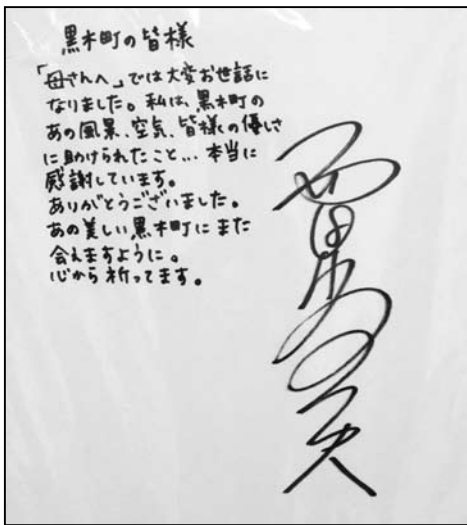 黒木町の皆様
「母さんへ」では大変お世話に
なりました。私は、黒木町の
あの風景、空気、皆様の優しさ
に助けられたこと... 本当に
感謝しています。
ありがとうございました。
あの美しい黒木町にまた
会えますように。
心から祈ってます。